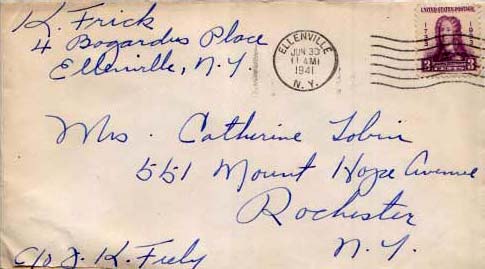 K. Frick
4 Bogardus Place
Ellenville, N.Y.
ELLENVILLE
JUN 30
11 AM
1941
N.Y.
UNITED STATES POSTAGE
3 3
Mrs. Catherine Tobin
551 Mount Hope Avenue
Rochester
N.Y.
c/o J. K. Feely